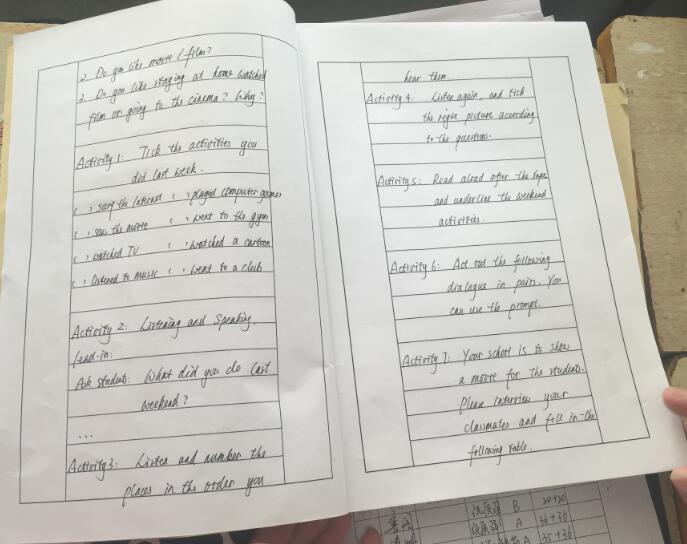 2. Do you like movie / film?
3. Do you like staging at dome watched
film or going to the cinema? Why?
Activity 1: Tick the activities you
did last week.
( ) surf the Internet ( ) played computer games
( ) saw the movie ( ) went to the gym
( ) watched TV ( ) watched a cartoon
( ) listened to music ( ) went to a club
Activity 2: Listening and Speaking.
Lead-in:
Ask students: What did you do last
weekend?
...
Activity 3: Listen and number the
places in the order you
hear them.
Activity 4: Listen again, and tick
the right picture according
to the questions.
Activity 5: Read aloud after the tape
and underline the weekend
activities.
Activity 6: Act out the following
dialogue in pairs. You
can use the prompt.
Activity 7: Your school is to show
a movie for the students.
Please interview your
classmates and fill in the
following table.
B 20+20
A 36+36
A 35+36